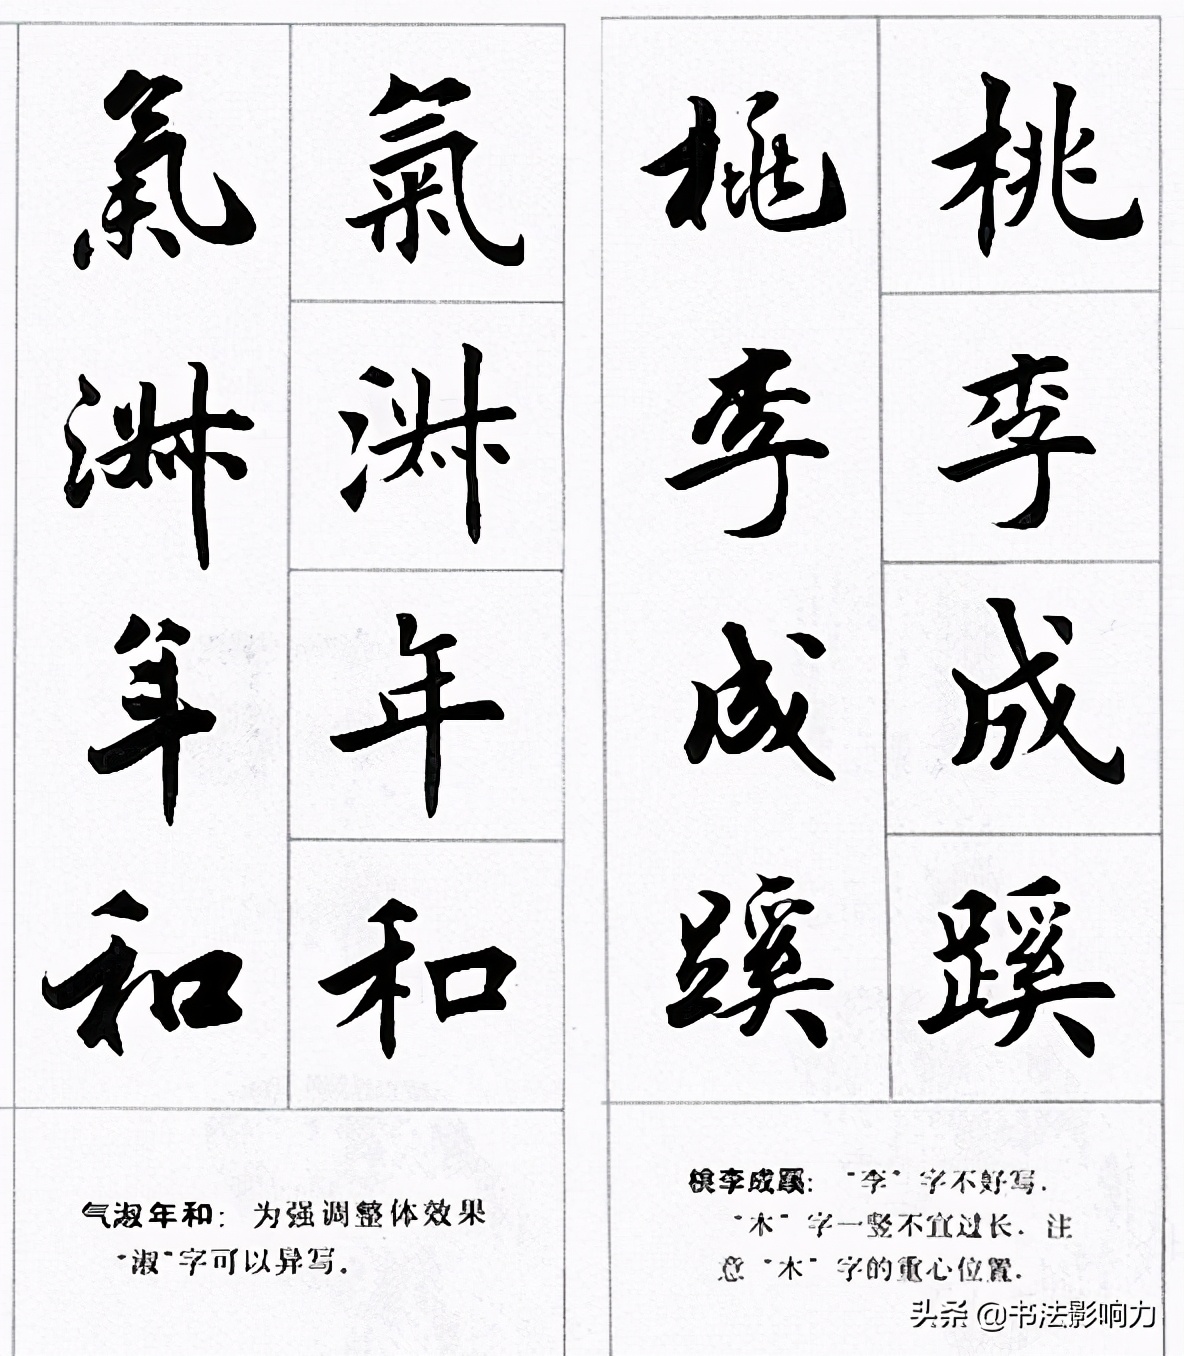 桃李成蹊
桃李成蹊
氣淑年和
氣淑年和
桃李成蹊：“李”字不好写.
“木”字一竖不宜过长.注
意“木”字的重心位置.
气淑年和：为强调整体效果
“淑”字可以异写.
头条 @书法影响力